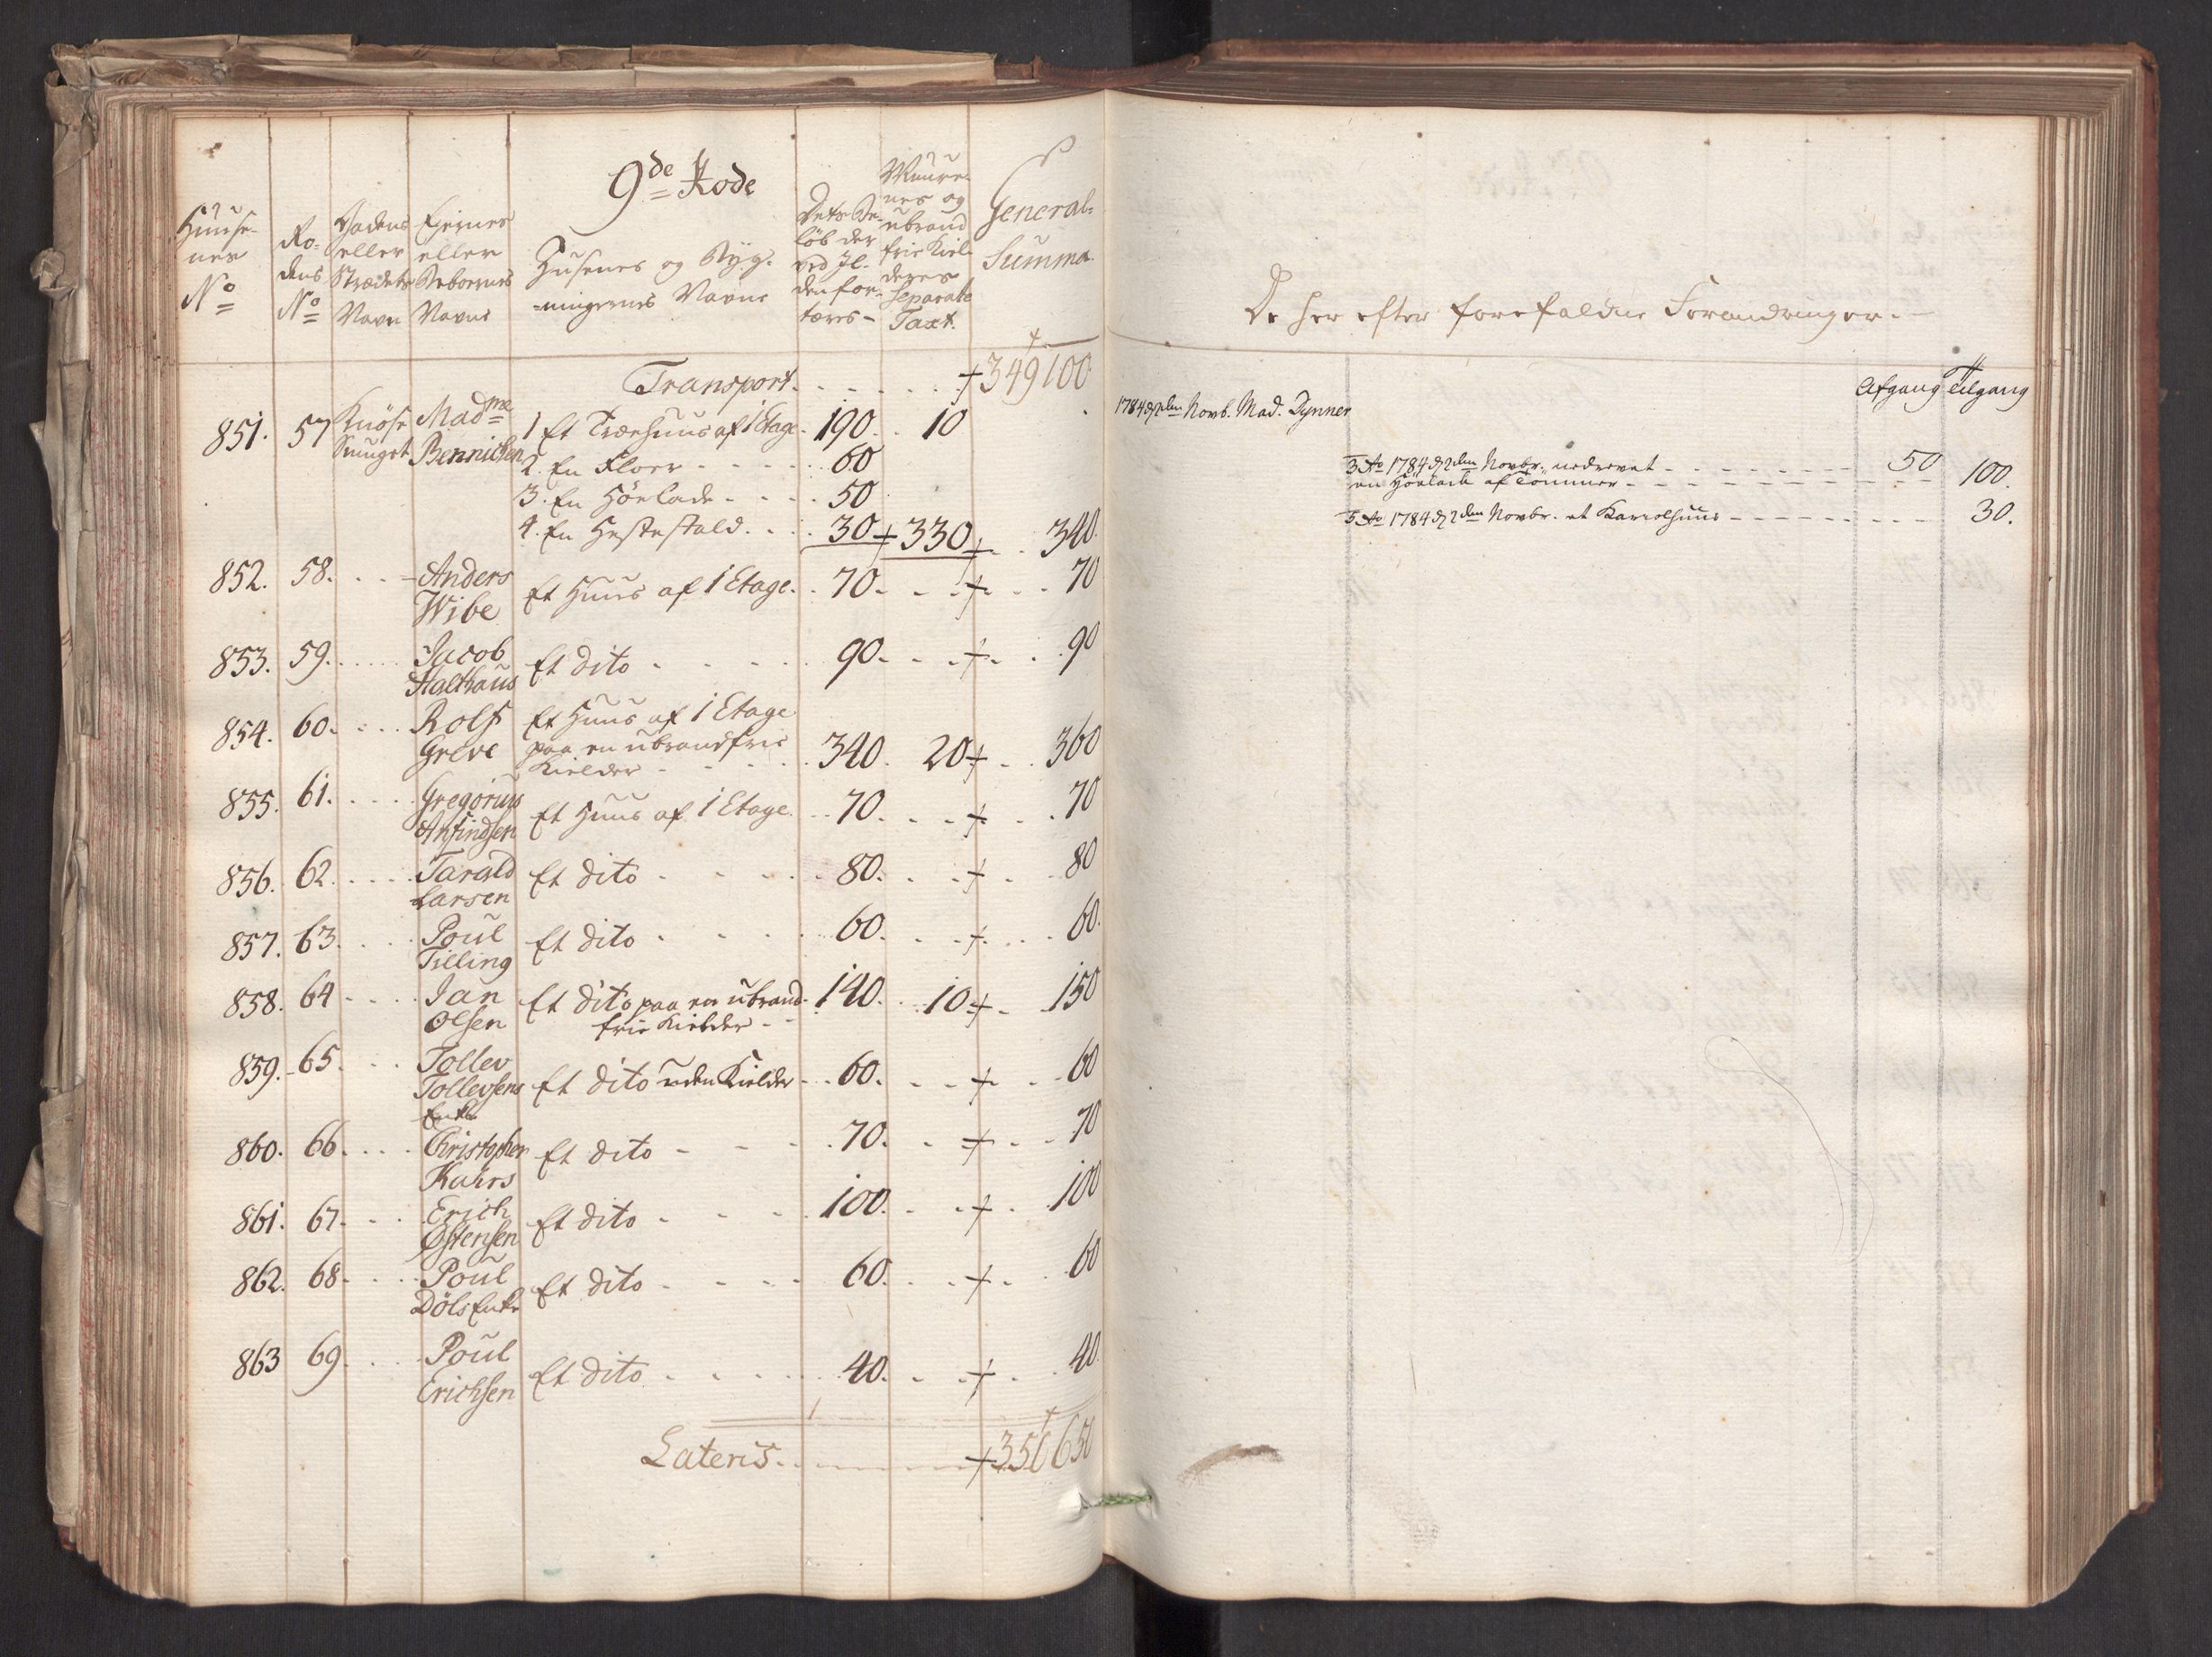 9de Rode
Huuse-
nes
No
Ro-
dens
No
Gadens
eller
Strædets
Navn
Ejernes
eller
Beboernes
Navne
Husenes og Byg-
ningernes Navne
Dets Be-
løb der
ved Jl-
den for-
tæres
Muure-
nes og
ubrand
frie Kiel-
deres
Separate
Taxt.
General-
Summa
Transport. 349100
851. 57 Knøse Smuget Madme Bennichen 1 Et Træehuus af 1 Etage 190. 10
2. En Floer 60
3. En Høelade 50
4. En Hestestald 30 330 340
852. 58. Anders Wibe Et Huus af 1 Etage. 70. 70
853. 59. Jacob Halthaus Et dito 90. 90
854. 60. Rolf Greve Et Huus af 1 Etage
paa en ubrandfrie
Kielder 340. 20 360
855. 61. Gregorius Anfindsen Et Huus af 1 Etage. 70. 70
856. 62. Tarald Larsen Et dito 80. 80
857. 63. Poul Tilling Et dito 60. 60.
858. 64 Jan Olsen Et dito paa en ubrand-
frie Kielder 140. 10 150
859. 65. Tollev Tollevsens Enke Et dito uden Kielder 60. 60
860. 66. Christopher Kahrs Et dito 70. 70
861. 67. Erich Østensen Et dito 100. 100
862. 68. Poul Döls Enke Et dito 60. 60
863 69. Poul Erichsen Et dito 40. 40.
Lateris 350650
De her efter forefaldne Forandringer.
Afgang Tilgang
1784 d 2den Novb. Mad. Dynner
3 Ao 1784 d 2den Novbr. nedrevet 50
en Høelade af Tømmer 100.
5 Ao 1784 d 2den Novbr. et Kariolhuus 30.